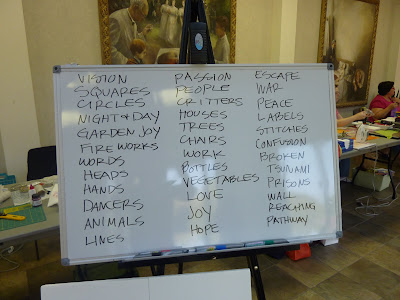 VISION
SQUARES
CIRCLES
NIGHT & DAY
GARDEN JOY
FIRE WORKS
WORDS
HEADS
HANDS
DANCERS
ANIMALS
LINES
PASSION
PEOPLE
CRITTERS
HOUSES
TREES
CHAIRS
WORK
BOTTLES
VEGETABLES
LOVE
JOY
HOPE
ESCAPE
WAR
PEACE
LABELS
STITCHES
CONFUSION
BROKEN
TSUNAMI
PRISONS
WALL
REACHING
PATHWAY